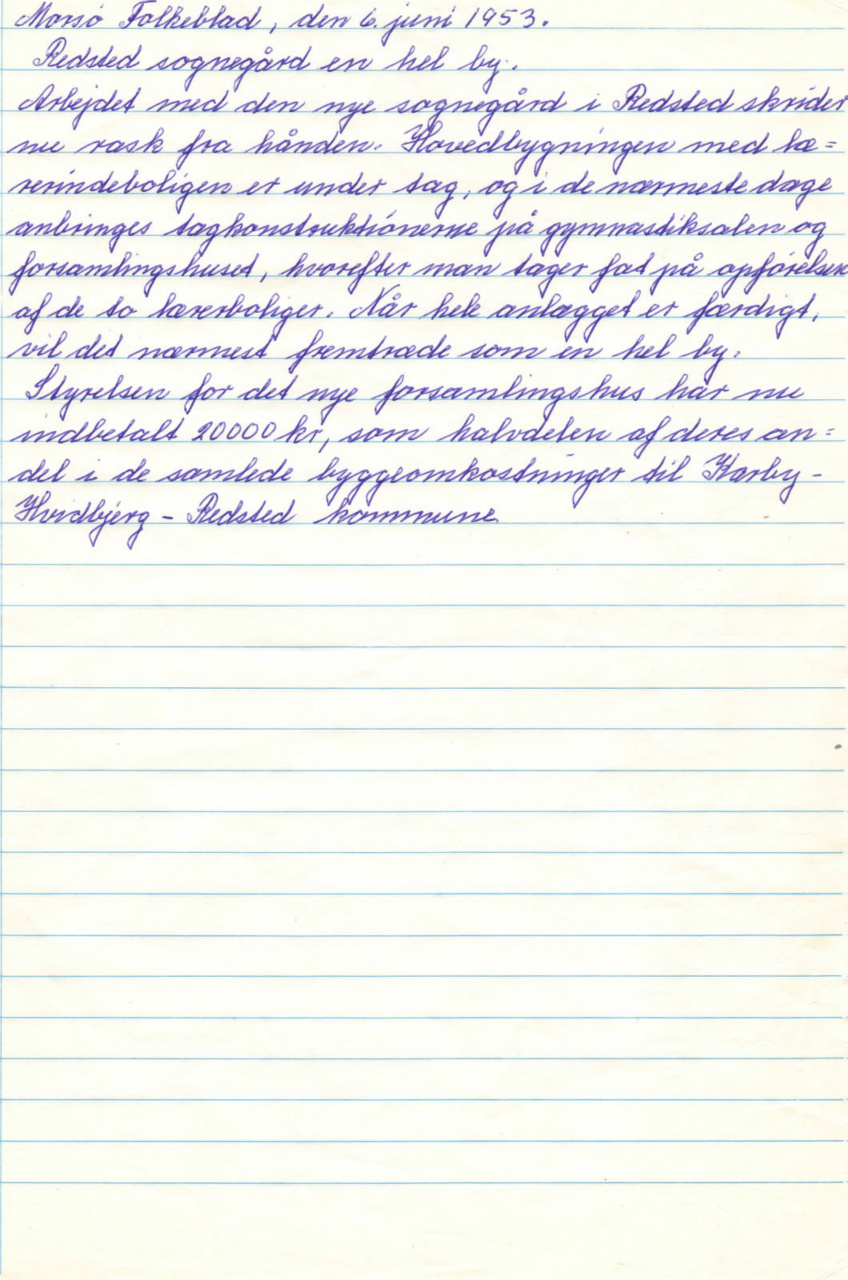 Morsö Folkeblad, den 6. juni 1953.
Redsted sognegård en hel by.
Arbejdet med den nye sognegård i Redsted skrider
nu rask fra hånden. Hovedbygningen med læ=
rerindeboligen er under tag, og i de nærmeste dage
anbringes tagkonstruktionerne på gymnastiksalen og
forsamlingshuset, hvorefter man tager fat på opförelsen
af de to lærerboliger. Når hele anlægget er færdigt,
vil det nærmest fremtræde som en hel by.
Styrelsen for det nye forsamlingshus har nu
indbetalt 20000 kr, som halvdelen af deres an=
del i de samlede byggeomkostninger til Karby-
Hvidbjerg - Redsted kommune.